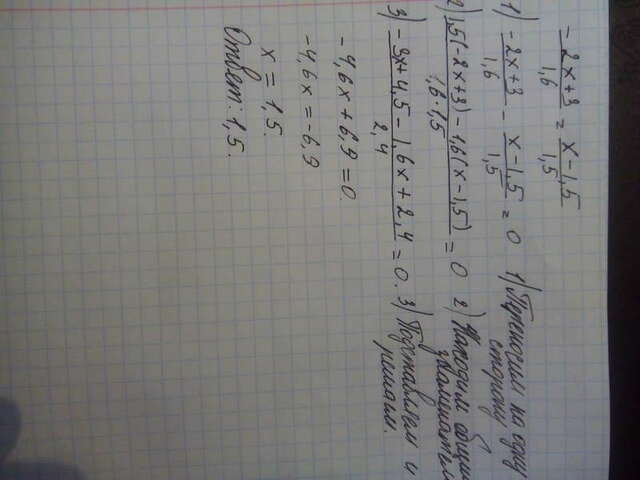 -2x+3/1,6 = x-1,5/1,5
1) -2x+3/1,6 - x-1,5/1,5 = 0 1) Переносим на одну сторону
2) 1,5(-2x+3)-1,6(x-1,5)/1,6·1,5 = 0 2) Находим общий знаменатель
3) -3x+4,5-1,6x+2,4/2,4 = 0. 3) Подставляем и решаем.
-4,6x+6,9=0
-4,6x=-6,9
x=1,5.
Ответ: 1,5.